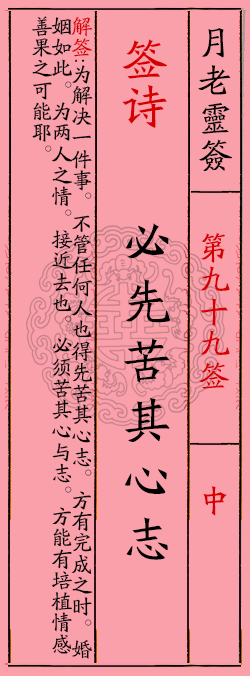 月老靈簽
第九十九签
中
签诗
必先苦其心志
解签:为解决一件事。不管任何人也得先苦其心志。方有完成之时。婚
姻如此。为两人之情。接近去也。必须苦其心与志。方能有培植情感
善果之可能耶。